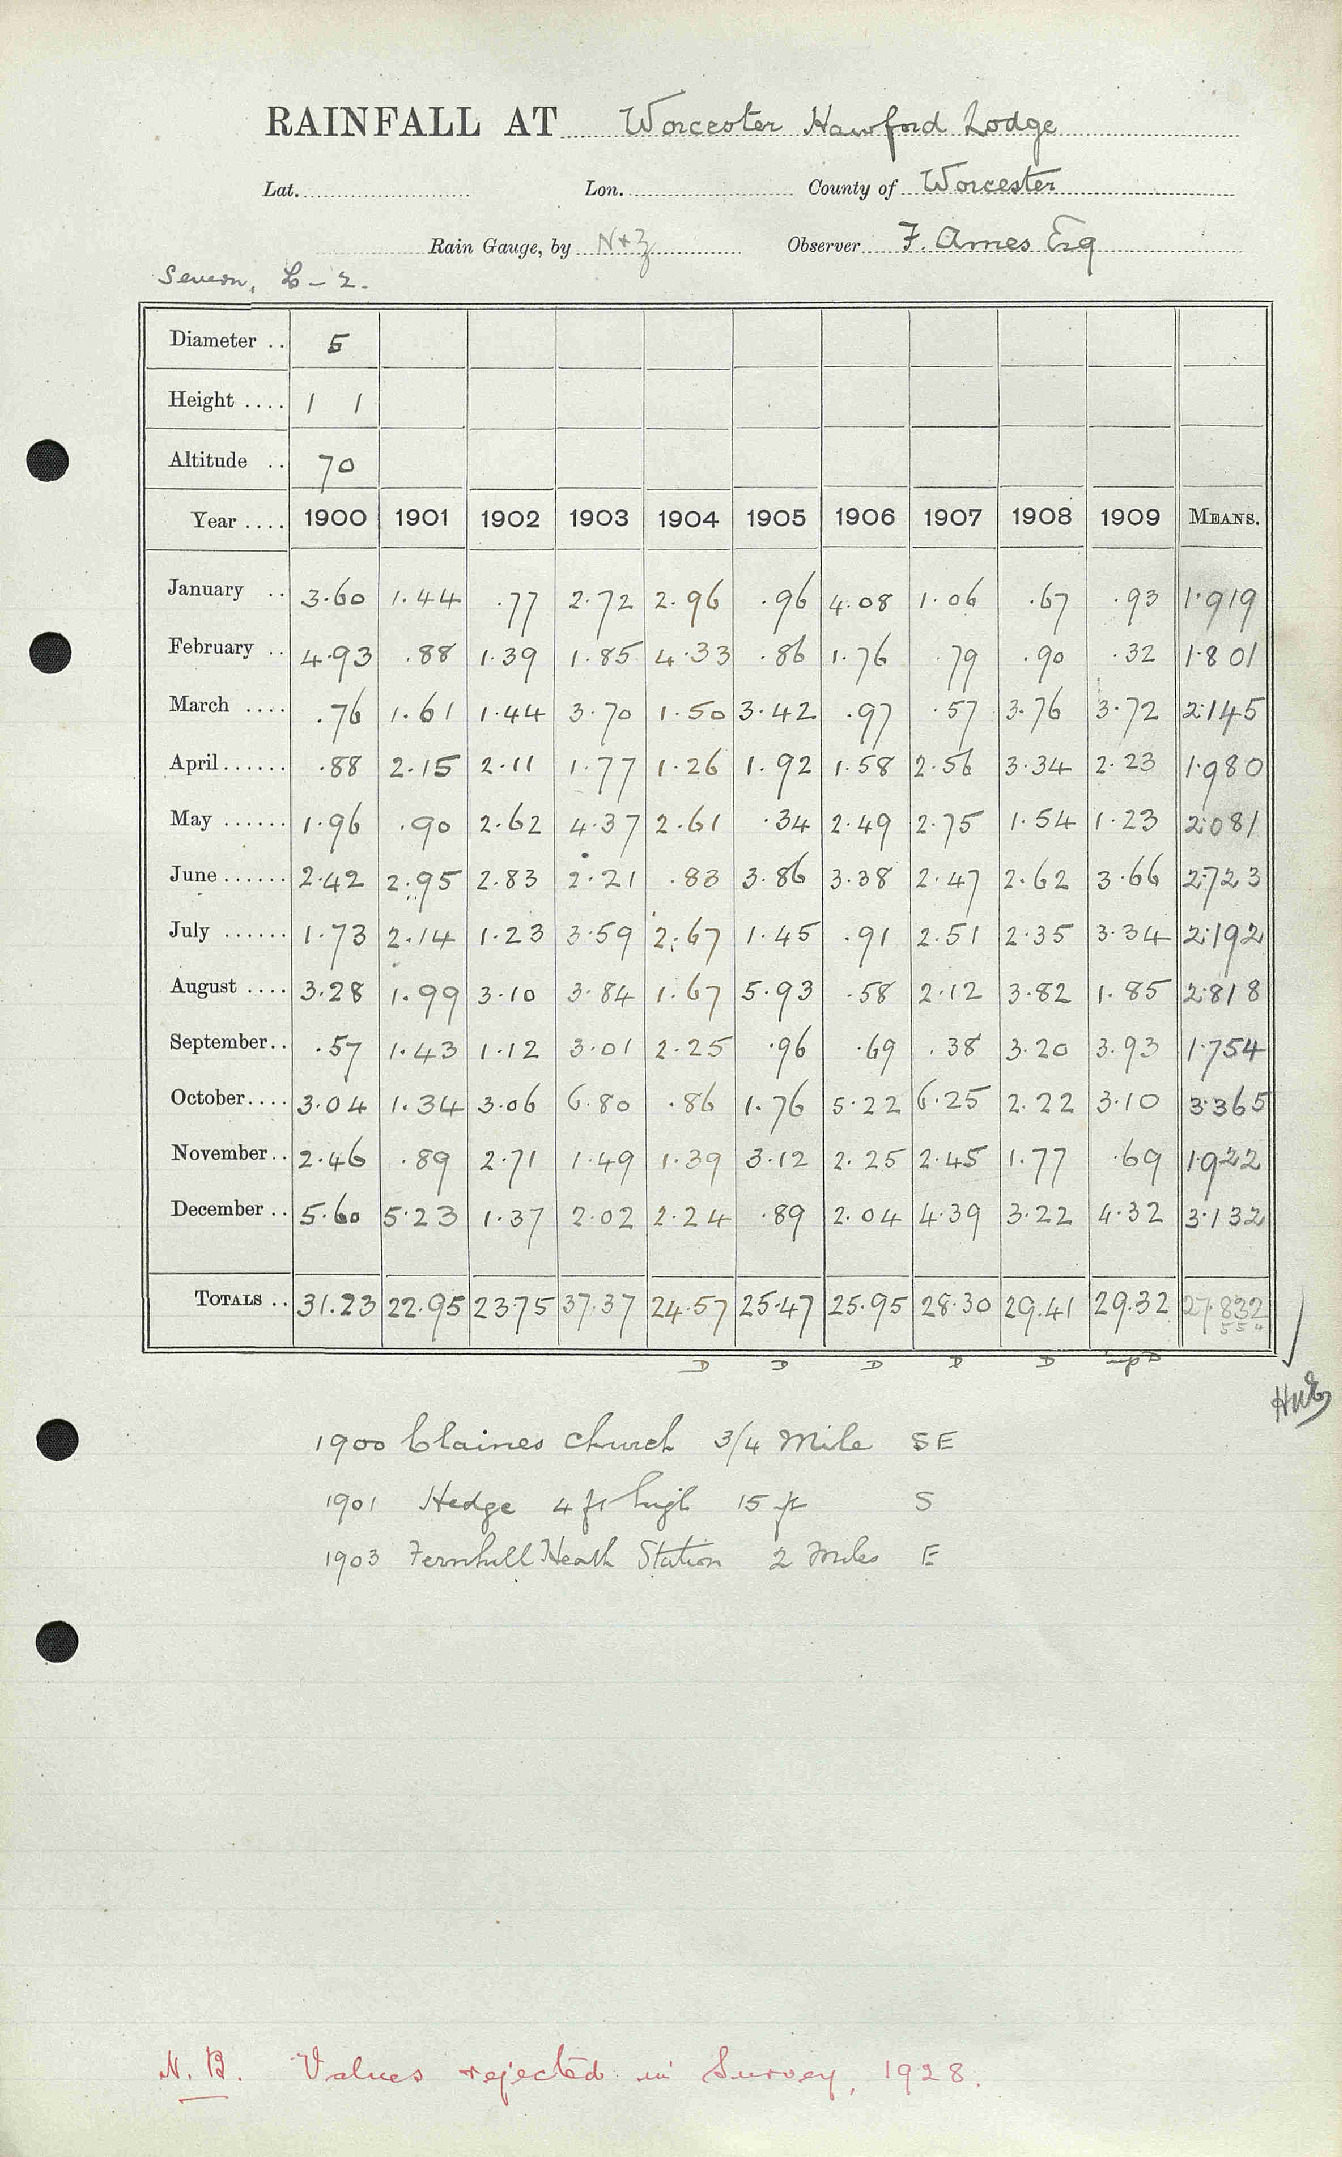 RAINFALL AT Worcester Hawford Lodge
Lat. Lon. County of Worcester
Rain Gauge, by N+Z Observer F. Ames Esq
Severn, L-2.
Diameter .. 5
Height .... 1 1
Altitude .. 70
Year .... 1900 1901 1902 1903 1904 1905 1906 1907 1908 1909 MEANS.
January .. 3.60 1.44 .77 2.72 2.96 .96 4.08 1.06 .67 .93 1.919
February .. 4.93 .88 1.39 1.85 4.33 .86 1.76 .79 .90 .32 1.801
March .... .76 1.61 1.44 3.70 1.50 3.42 .97 .57 3.76 3.72 2.145
April...... .88 2.15 2.11 1.77 1.26 1.92 1.58 2.56 3.34 2.23 1.980
May ...... 1.96 .90 2.62 4.37 2.61 .34 2.49 2.75 1.54 1.23 2.081
June...... 2.42 2.95 2.83 2.21 .83 3.86 3.38 2.47 2.62 3.66 2.723
July ...... 1.73 2.14 1.23 3.59 2.67 1.45 .91 2.51 2.35 3.34 2.192
August .... 3.28 1.99 3.10 3.84 1.67 5.93 .58 2.12 3.82 1.85 2.818
September.. .57 1.43 1.12 3.01 2.25 .96 .69 .38 3.20 3.93 1.754
October.... 3.04 1.34 3.06 6.80 .86 1.76 5.22 6.25 2.22 3.10 3.365
November.. 2.46 .89 2.71 1.49 1.39 3.12 2.25 2.45 1.77 .69 1.922
December .. 5.60 5.23 1.37 2.02 2.24 .89 2.04 4.39 3.22 4.32 3.132
TOTALS .. 31.23 22.95 23.75 37.37 24.57 25.47 25.95 28.30 29.41 29.32 27.832
D D D D D imp D
1900 Claines Church 3/4 Mile SE
1901 Hedge 4 ft high 15 ft S
1903 Fernhill Heath Station 2 Miles E
N.B. Values rejected in Survey, 1928.